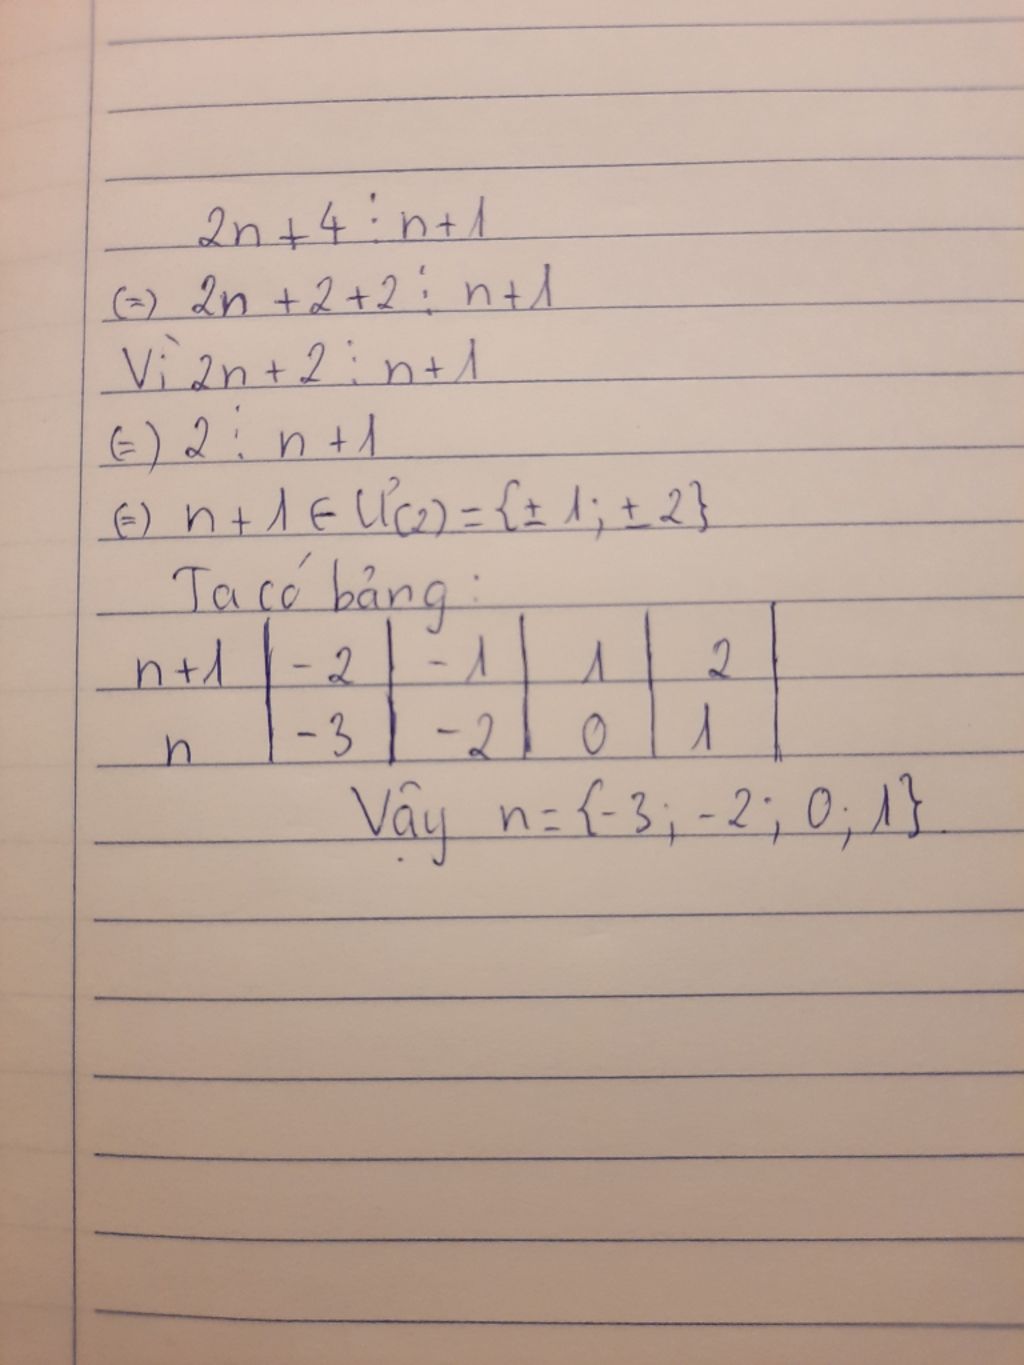 2n + 4 ⋮ n+1
(=) 2n + 2 + 2 ⋮ n+1
Vì 2n + 2 ⋮ n+1
(=) 2 ⋮ n +1
(=) n + 1 ∈ Ư(2) = {± 1; ± 2}
Ta có bảng:
n+1 | -2 | -1 | 1 | 2 |
n | -3 | -2 | 0 | 1 |
Vậy n = {-3; -2; 0; 1}.